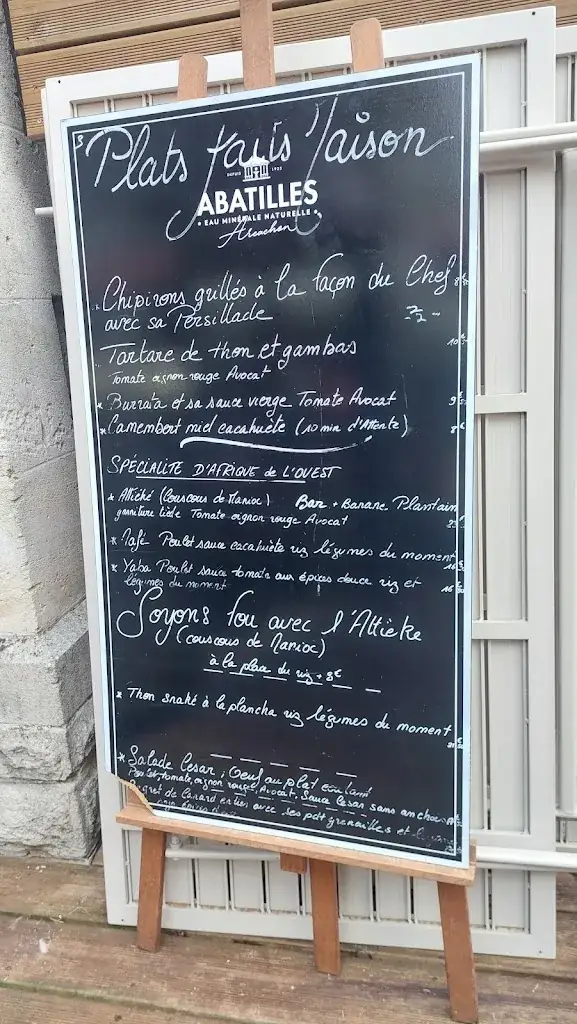 Plats faits Maison
DEPUIS 1925
ABATILLES
• EAU MINÉRALE NATURELLE •
Arcachon
Chipirons grillés à la façon du Chef
avec sa Persillade
Tartare de thon et gambas
Tomate oignon rouge Avocat
* Burrata et sa sauce vierge Tomate Avocat
* Camembert miel cacahuète (10 min d'Attente)
SPÉCIALITÉ D'AFRIQUE de L'OUEST
* Attiéké (Couscous de Manioc) Bar + Banane Plantain
garniture tiède Tomate oignon rouge Avocat
* Mafé Poulet sauce cacahuète riz légumes du moment
* Yaba Poulet sauce tomate aux épices douce riz et
légumes du moment
Soyons fou avec l'Attieke
(couscous de Manioc)
à la place du riz + 3€
* Thon snaké à la plancha riz légumes du moment
* Salade Cesar ; Oeuf au plat
Poulet, tomate, oignon rouge, Avocat, Sauce Cesar sans anchois
Magret de Canard entier avec ses pdt grenailles et